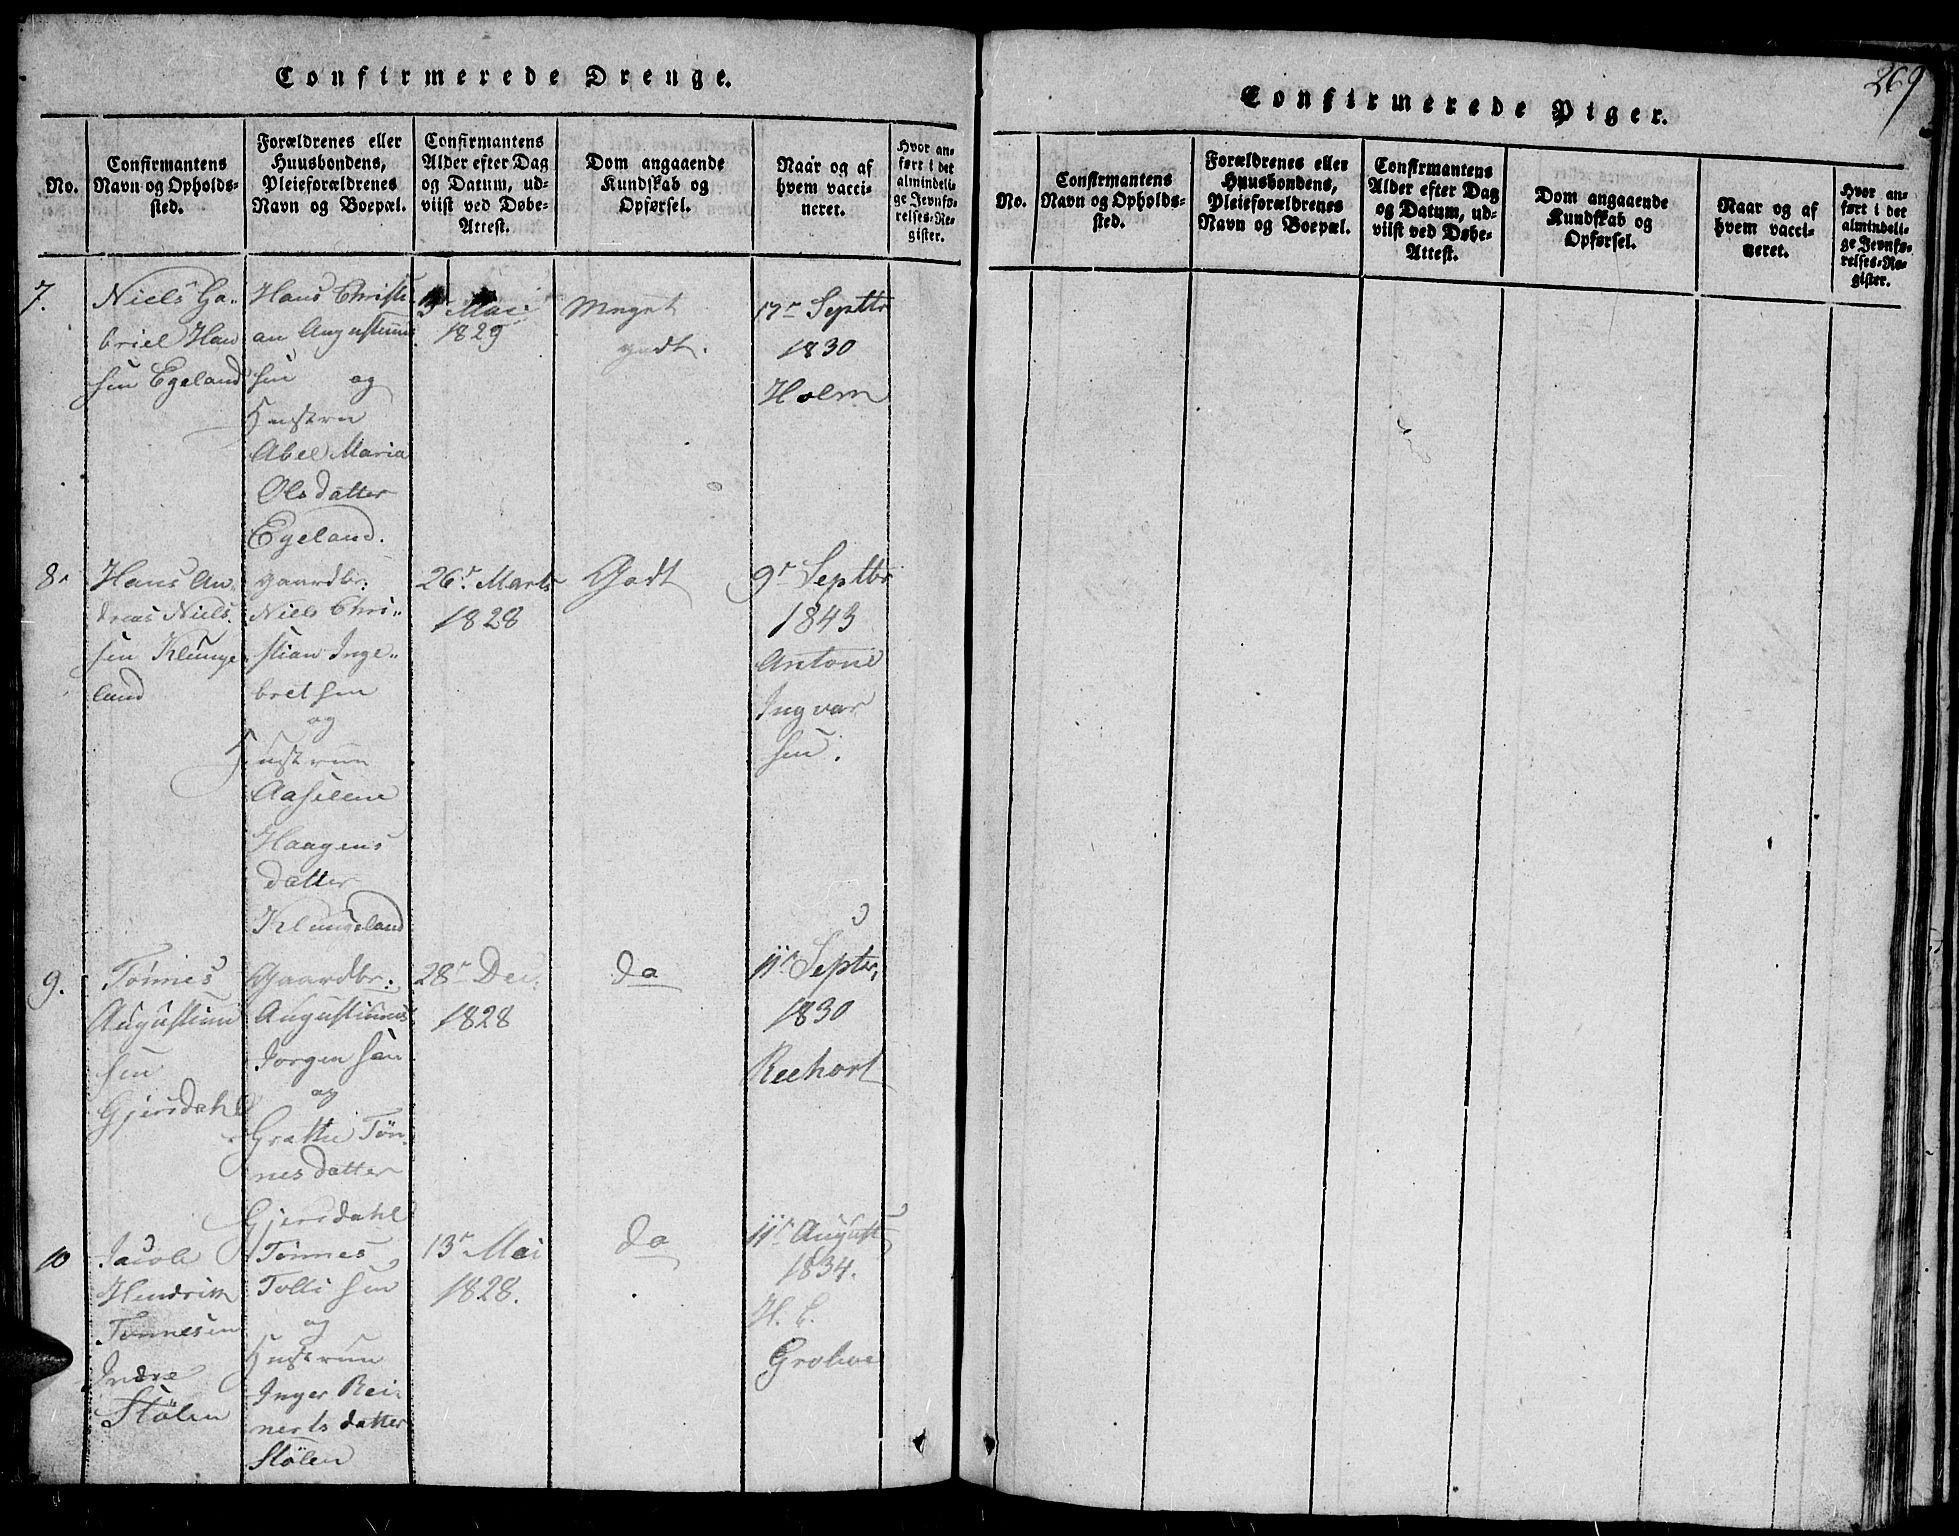 Confirmerede Drenge.
No.
Confirmantens
Navn og Opholds-
sted.
Forældrenes eller
Huusbondens,
Pleieforældrenes
Navn og Boepæl.
Confirmantens
Alder efter Dag
og Datum, ud-
viist ved Døbe-
Attest.
Dom angaaende
Kundskab og
Opførsel.
Naar og af
hvem vacci-
neret.
Hvor an-
ført i det
almindeli-
ge Jevnfø-
relses-Re-
gister.
7.
Niels Ga-
briel Han
sen Egeland
Hans Christi
an Augustinus
sen og
Hustru
Abel Maria
Olsdatter
Egeland.
Mai
1829
Meget
godt.
17r Septbr
1830
Holm
8.
Hans An-
dreas Niels-
sen Klunge
land
Gaardbr:
Niels Chri-
stian Inge-
bretsen
og
Hustrue
Aaselene
Haagens
datter
Klungeland
26r Marts
1828
Godt
9r Septbr
1843
Antoni
Ingvar
sen.
9.
Tønnes
Augustinu
sen
Gjersdahl
Gaardbr:
Augustinus
Jørgensen
og
Grethe Tøn-
nesdatter
Gjersdahl
28r Dec.
1828
do
11r Septbr,
1830
Reehort
10
Jacob
Hendrik
Tønnesen
Indre
Stølen
Tønnes
Tollisen
og
Hustrue
Inger Rei-
nertsdatter
Stølen
13r Mai
1828.
do
11r August
1834.
Grohve
269
Confirmerede Piger.
No.
Confirmantens
Navn og Opholds-
sted.
Forældrenes eller
Huusbondens,
Pleieforældrenes
Navn og Boepæl.
Confirmantens
Alder efter Dag
og Datum, ud-
viist ved Døbe-
Attest.
Dom angaaende
Kundskab og
Opførsel.
Naar og af
hvem vacci-
neret.
Hvor an-
ført i det
almindeli-
ge Jevnfø-
relses-Re-
gister.